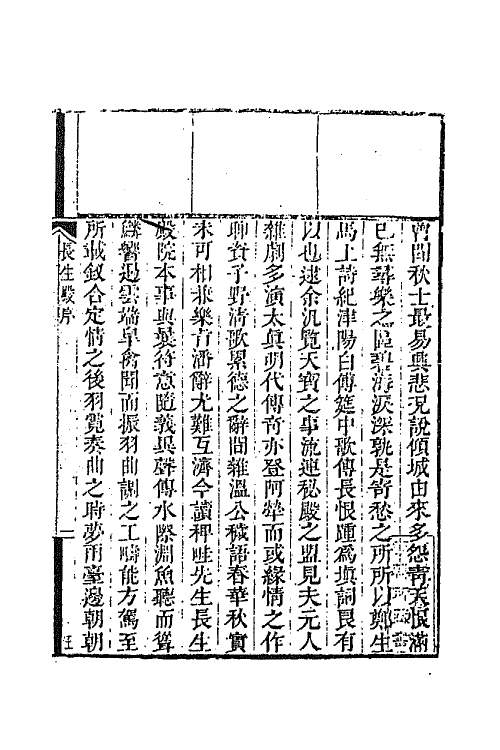 嘗聞秋士最易興悲況說傾城由來多怨青天恨滿
已無華樂之區碧海淚深孰是寄愁之所所以鄭生
馬上詩紀津陽白傅筵中歌傳長恨踵為填詞良有
以也逮余汎覽天寶之事流連秘殿之盟見夫元人
雜劇多演太真明代傳奇亦登阿犖而或緣情之作
聊資子野清歌累德之辭間雜溫公穢語春華秋實
未可相兼樂旨潘辭尤難互濟今讀稗畦先生長生
殿院本事與曩符意隨義異聲傳水際淵魚聽而聳
鱗響遏雲端皐禽聞而振羽曲調之工疇能方駕至
所載釵合定情之後羽霓奏曲之時夢雨臺邊朝朝
長生殿序
一